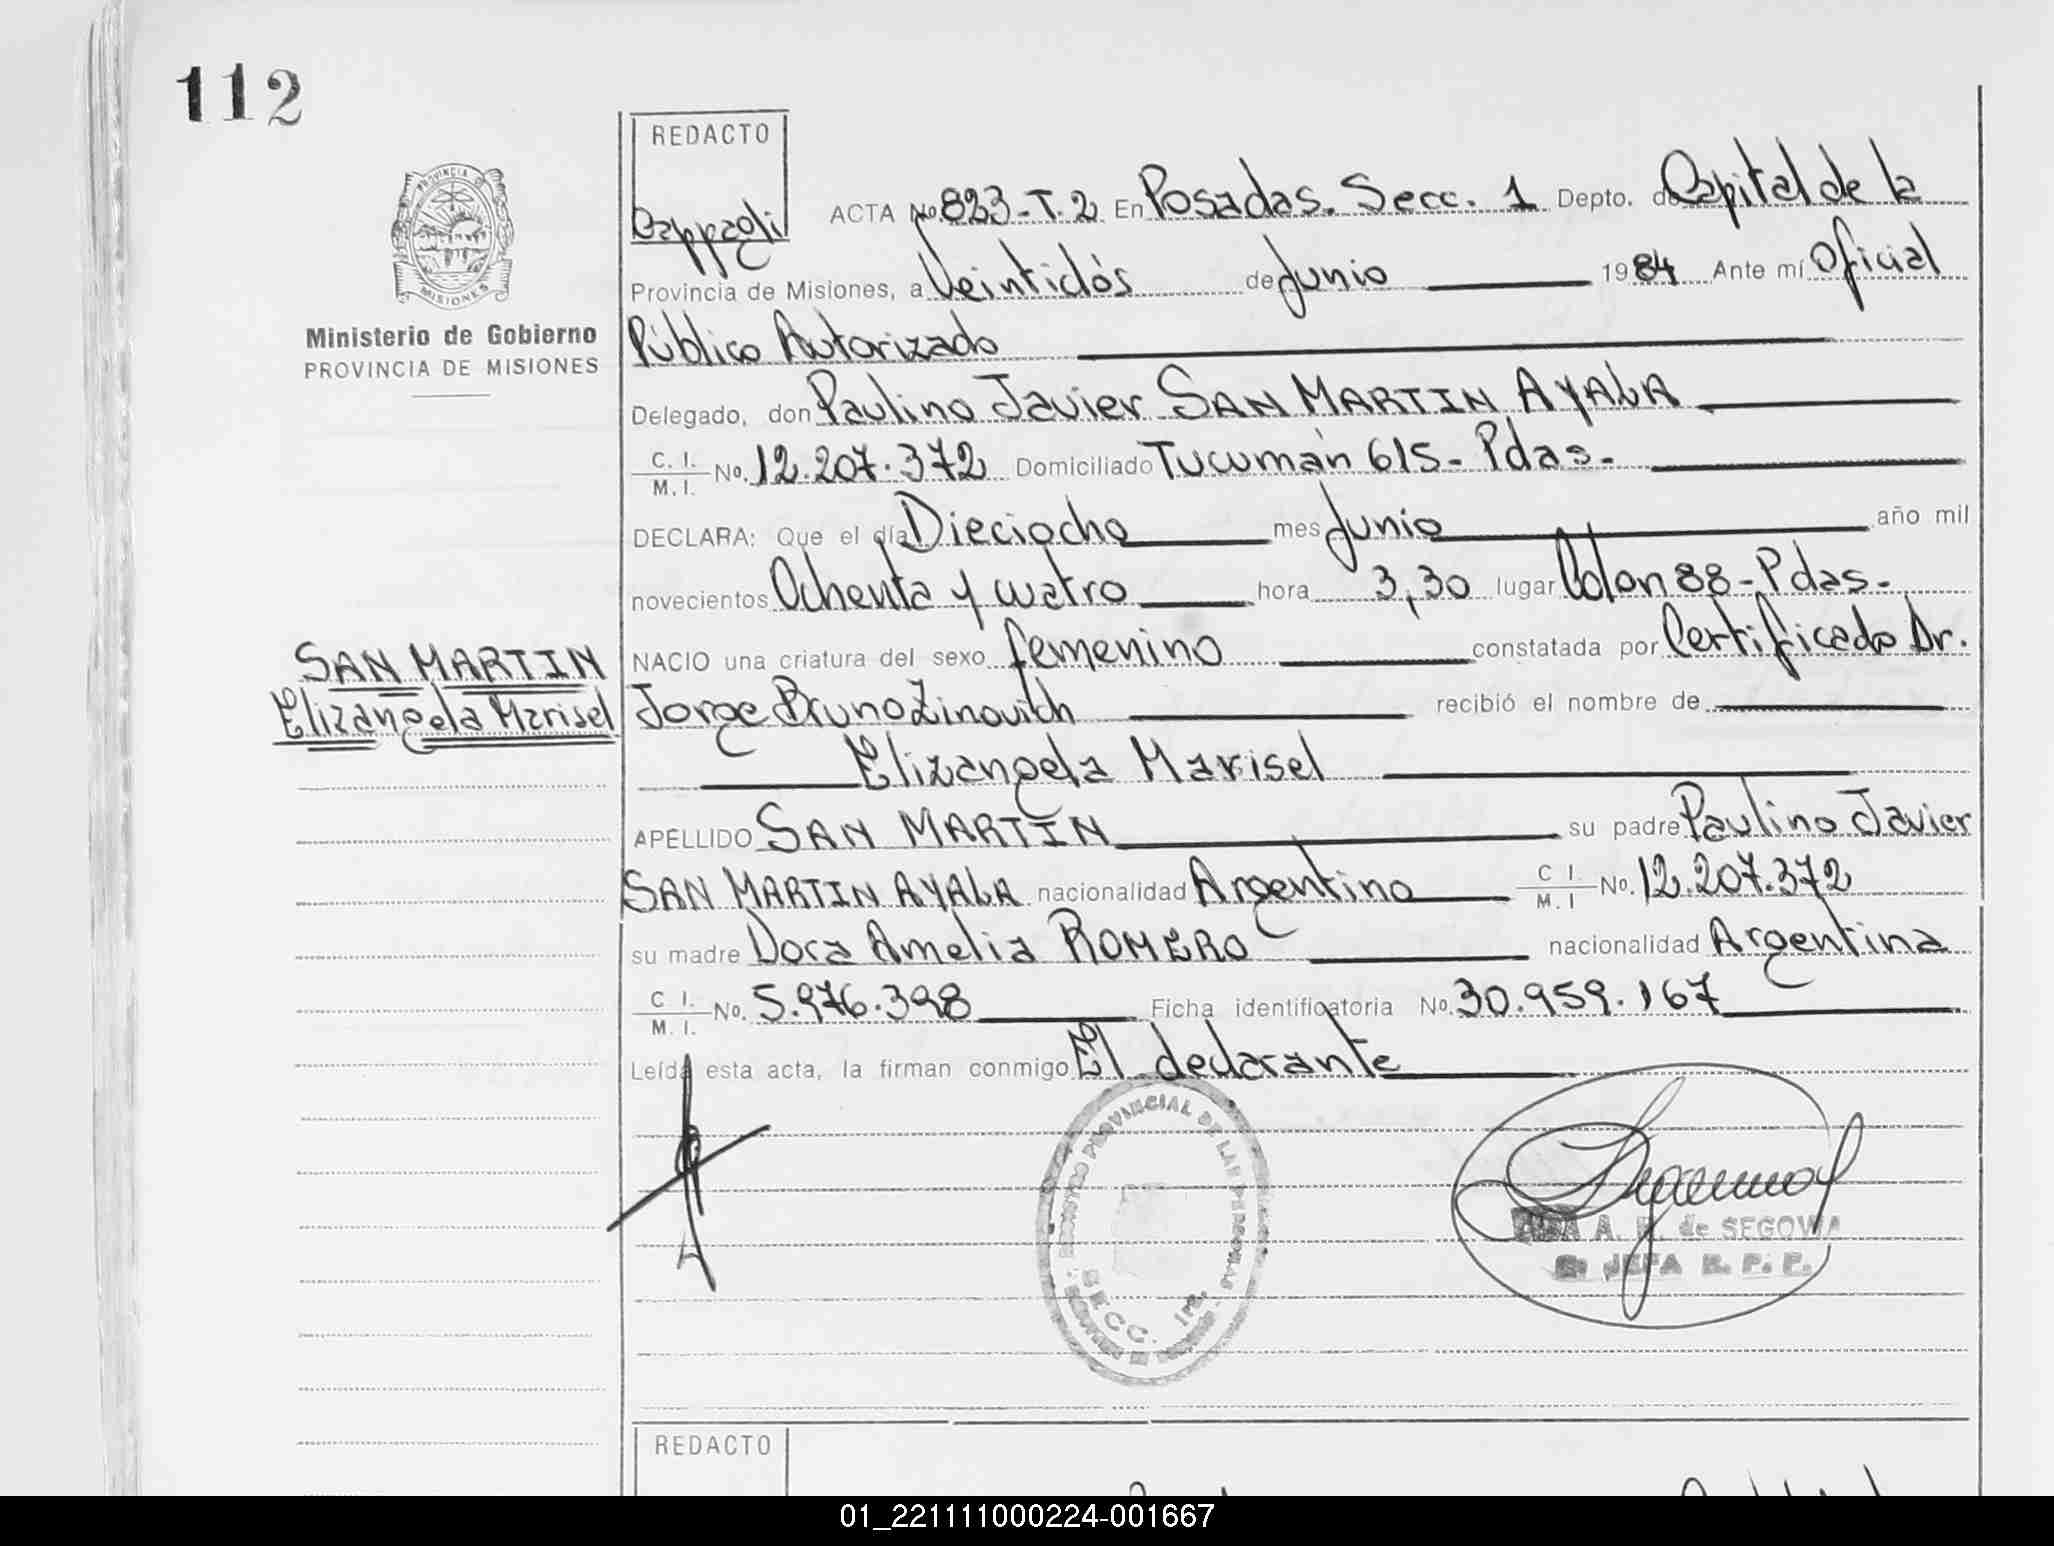 112
REDACTO
Cappagli
PROVINCIA D MISIONES
Ministerio de Gobierno
PROVINCIA DE MISIONES
SAN MARTIN
Elizangela Marisel
ACTA No. 823-T.2 En Posadas. Secc. 1 Depto. de Capital de la
Provincia de Misiones, a Veintidós de Junio 1984 Ante mí Oficial
Público Autorizado
Delegado, don Paulino Javier SAN MARTIN AYALA
C. I. M. I. No. 12.207.372 Domiciliado Tucumán 615- Pdas-
DECLARA: Que el día Dieciocho mes Junio año mil
novecientos Ochenta y cuatro hora 3,30 lugar Colon 88-Pdas-
NACIO una criatura del sexo femenino constatada por Certificado Dr.
Jorge Bruno Zinovich recibió el nombre de
Elizangela Marisel
APELLIDO SAN MARTIN su padre Paulino Javier
SAN MARTIN AYALA nacionalidad Argentino C I. M. I No. 12.207.372
su madre Dora Amelia ROMERO nacionalidad Argentina
C I. M. I. No. 5.976.398 Ficha identificatoria No. 30.959.167
Leída esta acta, la firman conmigo El declarante
REGISTRO PROVINCIAL DE LAS PERSONAS
SECC. 1ra.
A. de SEGOVIA
JEFA R. P. P.
REDACTO
01_221111000224-001667